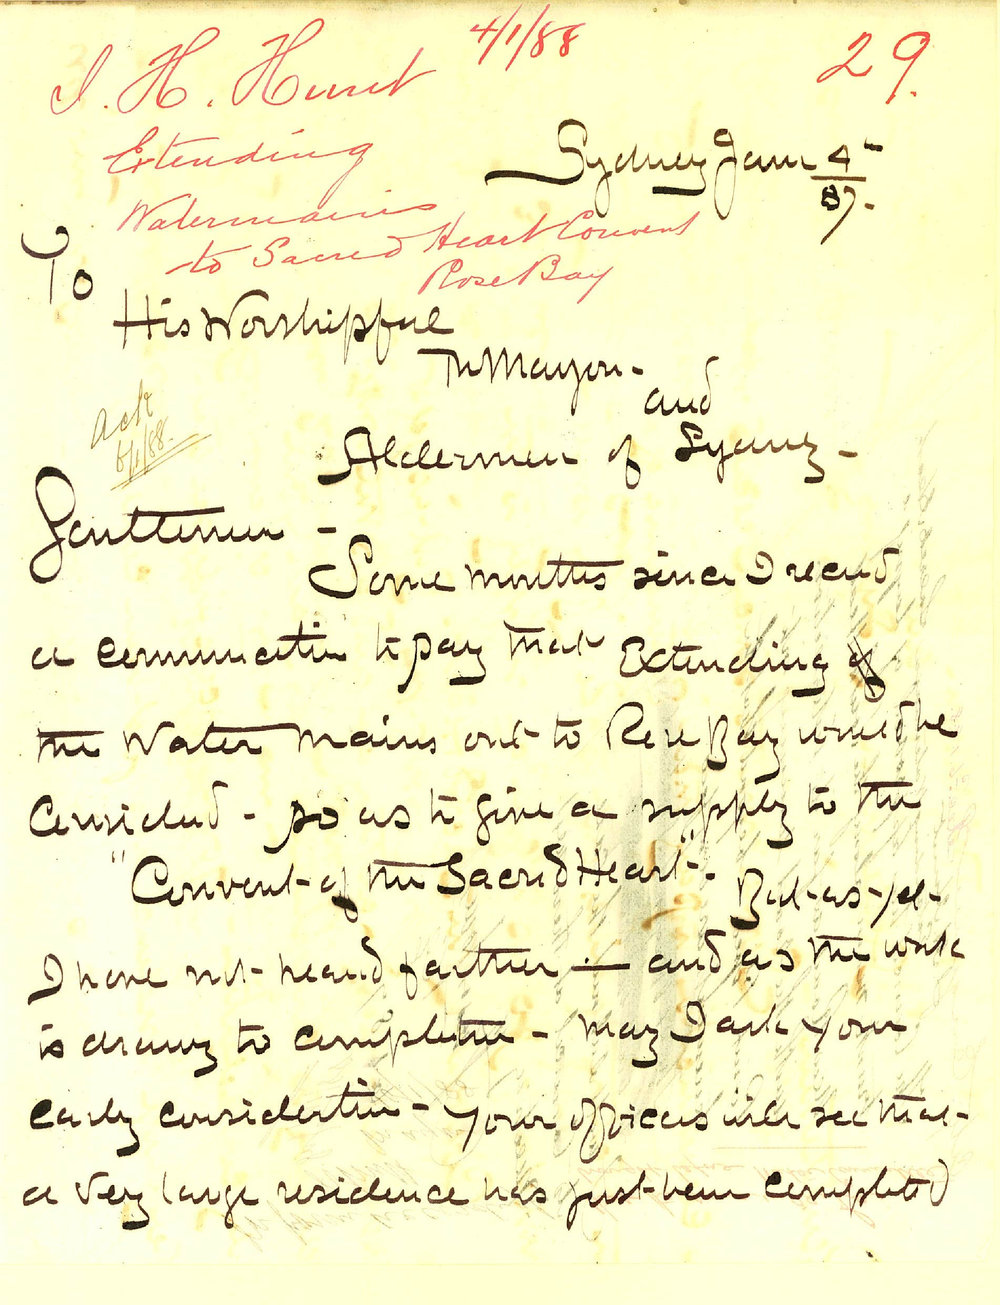 J. H. Hunt
4/1/88
29.
Extending
Watermains
to Sacred Heart Convent
Rose Bay
Sydney Jany 4
87.
To
His Worshipful
The Mayor -
and
Aldermen of Sydney -
Ack
6/1/88.
Gentlemen -
Some months since I recd
a communication to say that Extending
the Water mains out to Rose Bay would be
Considered - so as to give a supply to the
"Convent of the Sacred Heart" - But as yet
I have not heard farther — and as the work
is drawing to completion - may I ask your
early consideration - Your officers will see that
a very large residence has just been completed